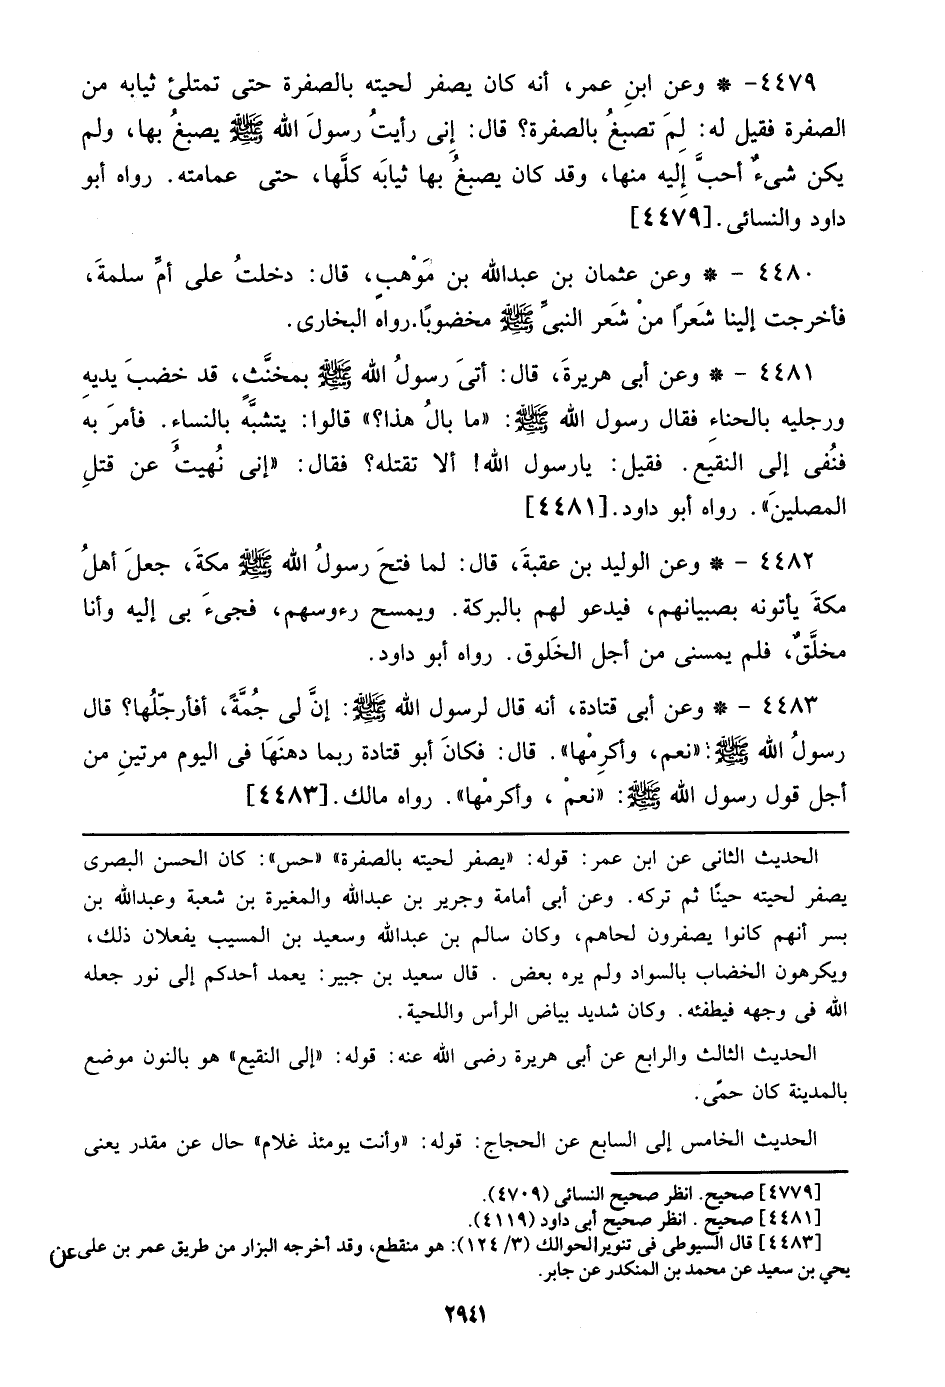 ٤٤٧٩- * وعن ابنِ عمر، أنه كان يصفر لحيته بالصفرة حتى تمتلئ ثيابه من
الصفرة فقيل له: لِمَ تصبغُ بالصفرة؟ قال: إِنى رأيتُ رسولَ الله ﷺ يصبغُ بها، ولم
يكن شىءٌ أحبَّ إِليه منها، وقد كان يصبغُ بها ثيابَه كلَّها، حتى عمامته. رواه أبو
داود والنسائى.[٤٤٧٩]
٤٤٨٠ - * وعن عثمان بن عبدالله بن مَوْهبٍ، قال: دخلتُ على أمِّ سلمةَ،
فأخرجت إلينا شَعرًا منْ شَعر النبىِّ ﷺ مخضوبًا.رواه البخارى.
٤٤٨١ - * وعن أبى هريرةَ، قال: أتىَ رسولُ الله ﷺ بمخنَّثٍ، قد خضبَ يديهِ
ورجليه بالحناءِ فقال رسول الله ﷺ: «ما بالُ هذا؟» قالوا: يتشبَّه بالنساء. فأمرَ به
فنُفى إلى النقيع. فقيل: يارسول الله! ألا تقتله؟ فقال: «إنى نُهيتُ عن قتلِ
المصلينَ». رواه أبو داود.[٤٤٨١]
٤٤٨٢ - * وعن الوليد بن عقبةَ، قال: لما فتحَ رسولُ الله ﷺ مكةَ، جعلَ أهلُ
مكةَ يأتونه بصبيانهم، فيدعو لهم بالبركة. ويمسح رءوسهم، فجىءَ بى إليه وأنا
مخلَّقٌ، فلم يمسنى من أجل الخَلوق. رواه أبو داود.
٤٤٨٣ - * وعن أبى قتادة، أنه قال لرسول الله ﷺ: إنَّ لى جُمَّةً، أفأرجّلُها؟ قال
رسولُ الله ﷺ: «نعم، وأكرِمْها». قال: فكانَ أبو قتادة ربما دهنَهَا فى اليوم مرتينِ من
أجل قول رسول الله ﷺ: «نعمْ ، وأكرمْها». رواه مالك.[٤٤٨٣]
الحديث الثانى عن ابن عمر: قوله: «يصفر لحيته بالصفرة» «حس»: كان الحسن البصرى
يصفر لحيته حينًا ثم تركه. وعن أبى أمامة وجرير بن عبدالله والمغيرة بن شعبة وعبدالله بن
بسر أنهم كانوا يصفرون لحاهم، وكان سالم بن عبدالله وسعيد بن المسيب يفعلان ذلك،
ويكرهون الخضاب بالسواد ولم يره بعض . قال سعيد بن جبير: يعمد أحدكم إلى نور جعله
الله فى وجهه فيطفئه. وكان شديد بياض الرأس واللحية.
الحديث الثالث والرابع عن أبى هريرة رضى الله عنه: قوله: «إلى النقيع» هو بالنون موضع
بالمدينة كان حمًى.
الحديث الخامس إلى السابع عن الحجاج: قوله: «وأنت يومئذ غلام» حال عن مقدر يعنى
[٤٧٧٩] صحيح. انظر صحيح النسائى (٤٧٠٩).
[٤٤٨١] صحيح . انظر صحيح أبى داود (٤١١٩).
[٤٤٨٣] قال السيوطى فى تنويرالحوالك (٣/ ١٢٤): هو منقطع، وقد أخرجه البزار من طريق عمر بن على عن
يحي بن سعيد عن محمد بن المنكدر عن جابر.
٢٩٤١